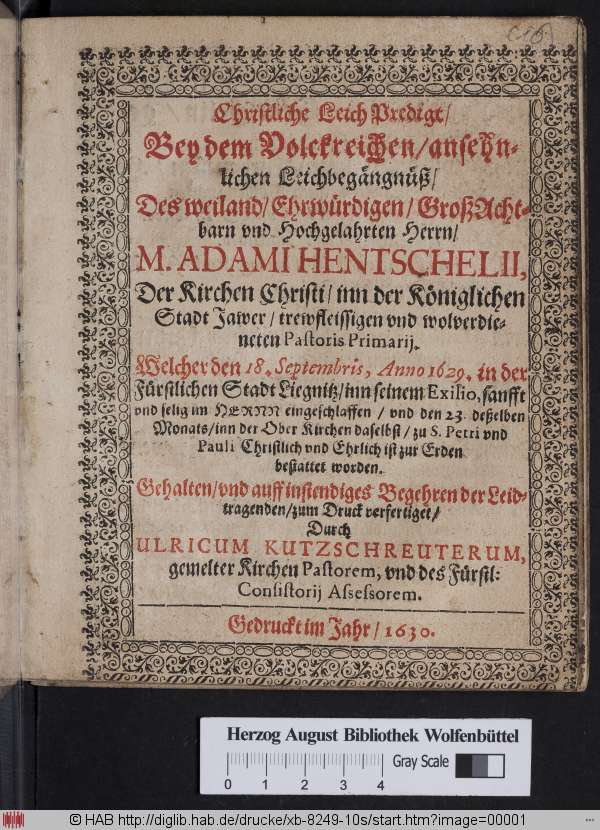 Christliche Leich Predigt/
Bey dem Volckreichen/ansehn-
lichen Leichbegängnüß/
Des weiland/Ehrwürdigen/GroßAcht-
barn vnd Hochgelahrten Herrn/
M. ADAMI HENTSCHELII,
Der Kirchen Christi/inn der Königlichen
Stadt Jawer/trewfleissigen vnd wolverdie-
neten Pastoris Primarij.
Welcher den 18. Septembris, Anno 1629. in der
Fürstlichen Stadt Liegnitz/inn seinem Exilio, sanfft
vnd selig im HERNN eingeschlaffen/vnd den 23. deßelben
Monats/inn der Ober Kirchen daselbst/zu S. Petri vnd
Pauli Christlich vnd Ehrlich ist zur Erden
bestattet worden.
Gehalten/vnd auff instendiges Begehren der Leid-
tragenden/zum Druck verfertiget/
Durch
ULRICUM KUTZSCHREUTERUM,
gemelter Kirchen Pastorem, vnd des Fürstl:
Consistorij Assessorem.
Gedruckt im Jahr/1630.
Herzog August Bibliothek Wolfenbüttel
Gray Scale
0 1 2 3 4
© HAB http://diglib.hab.de/drucke/xb-8249-10s/start.htm?image=00001